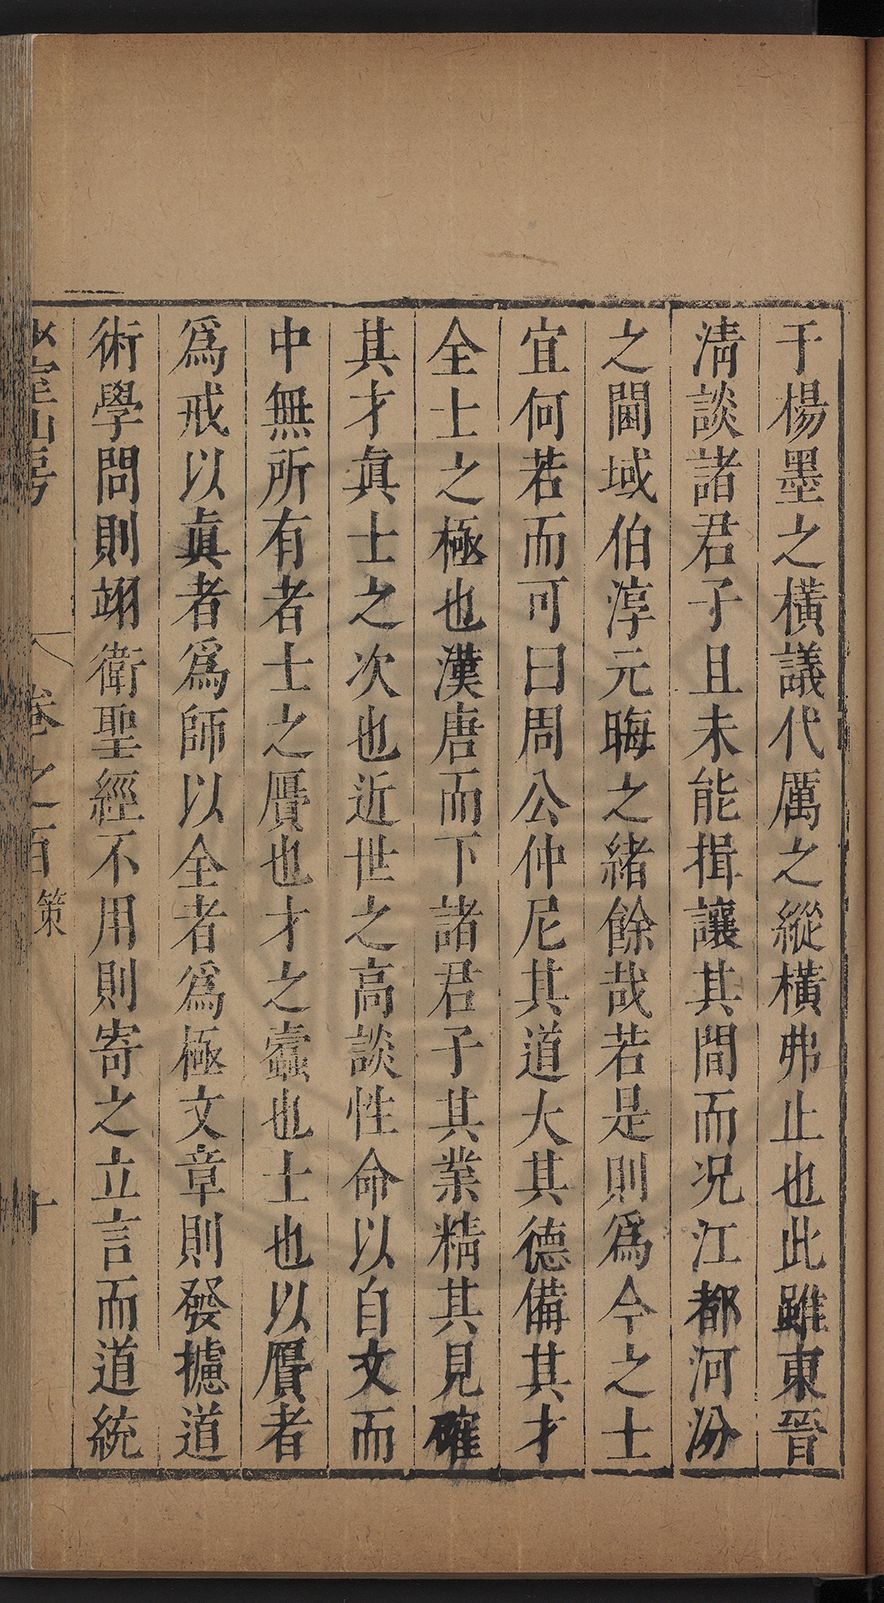 于楊墨之橫議代厲之縱橫弗止也此雖東晉
淸談諸君子且未能揖讓其間而况江都河汾
之閫域伯淳元晦之緒餘哉若是則爲今之士
宜何若而可曰周公仲尼其道大其德備其才
全士之極也漢唐而下諸君子其業精其見確
其才眞士之次也近世之高談性命以自文而
中無所有者士之贋也才之蠧也士也以贋者
爲戒以眞者爲師以全者爲極文章則發攄道
術學問則翊衛聖經不用則寄之立言而道統
山房
卷之百 策
十